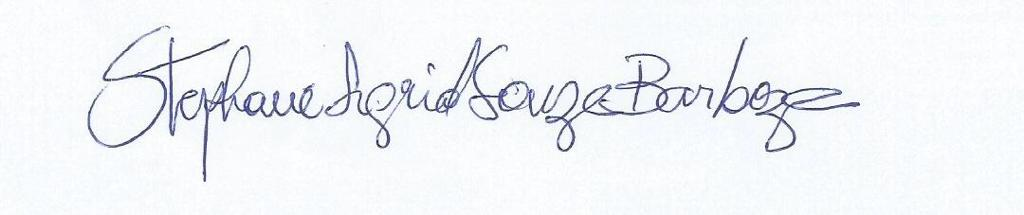 Stephane Sigrid Souza Barboza